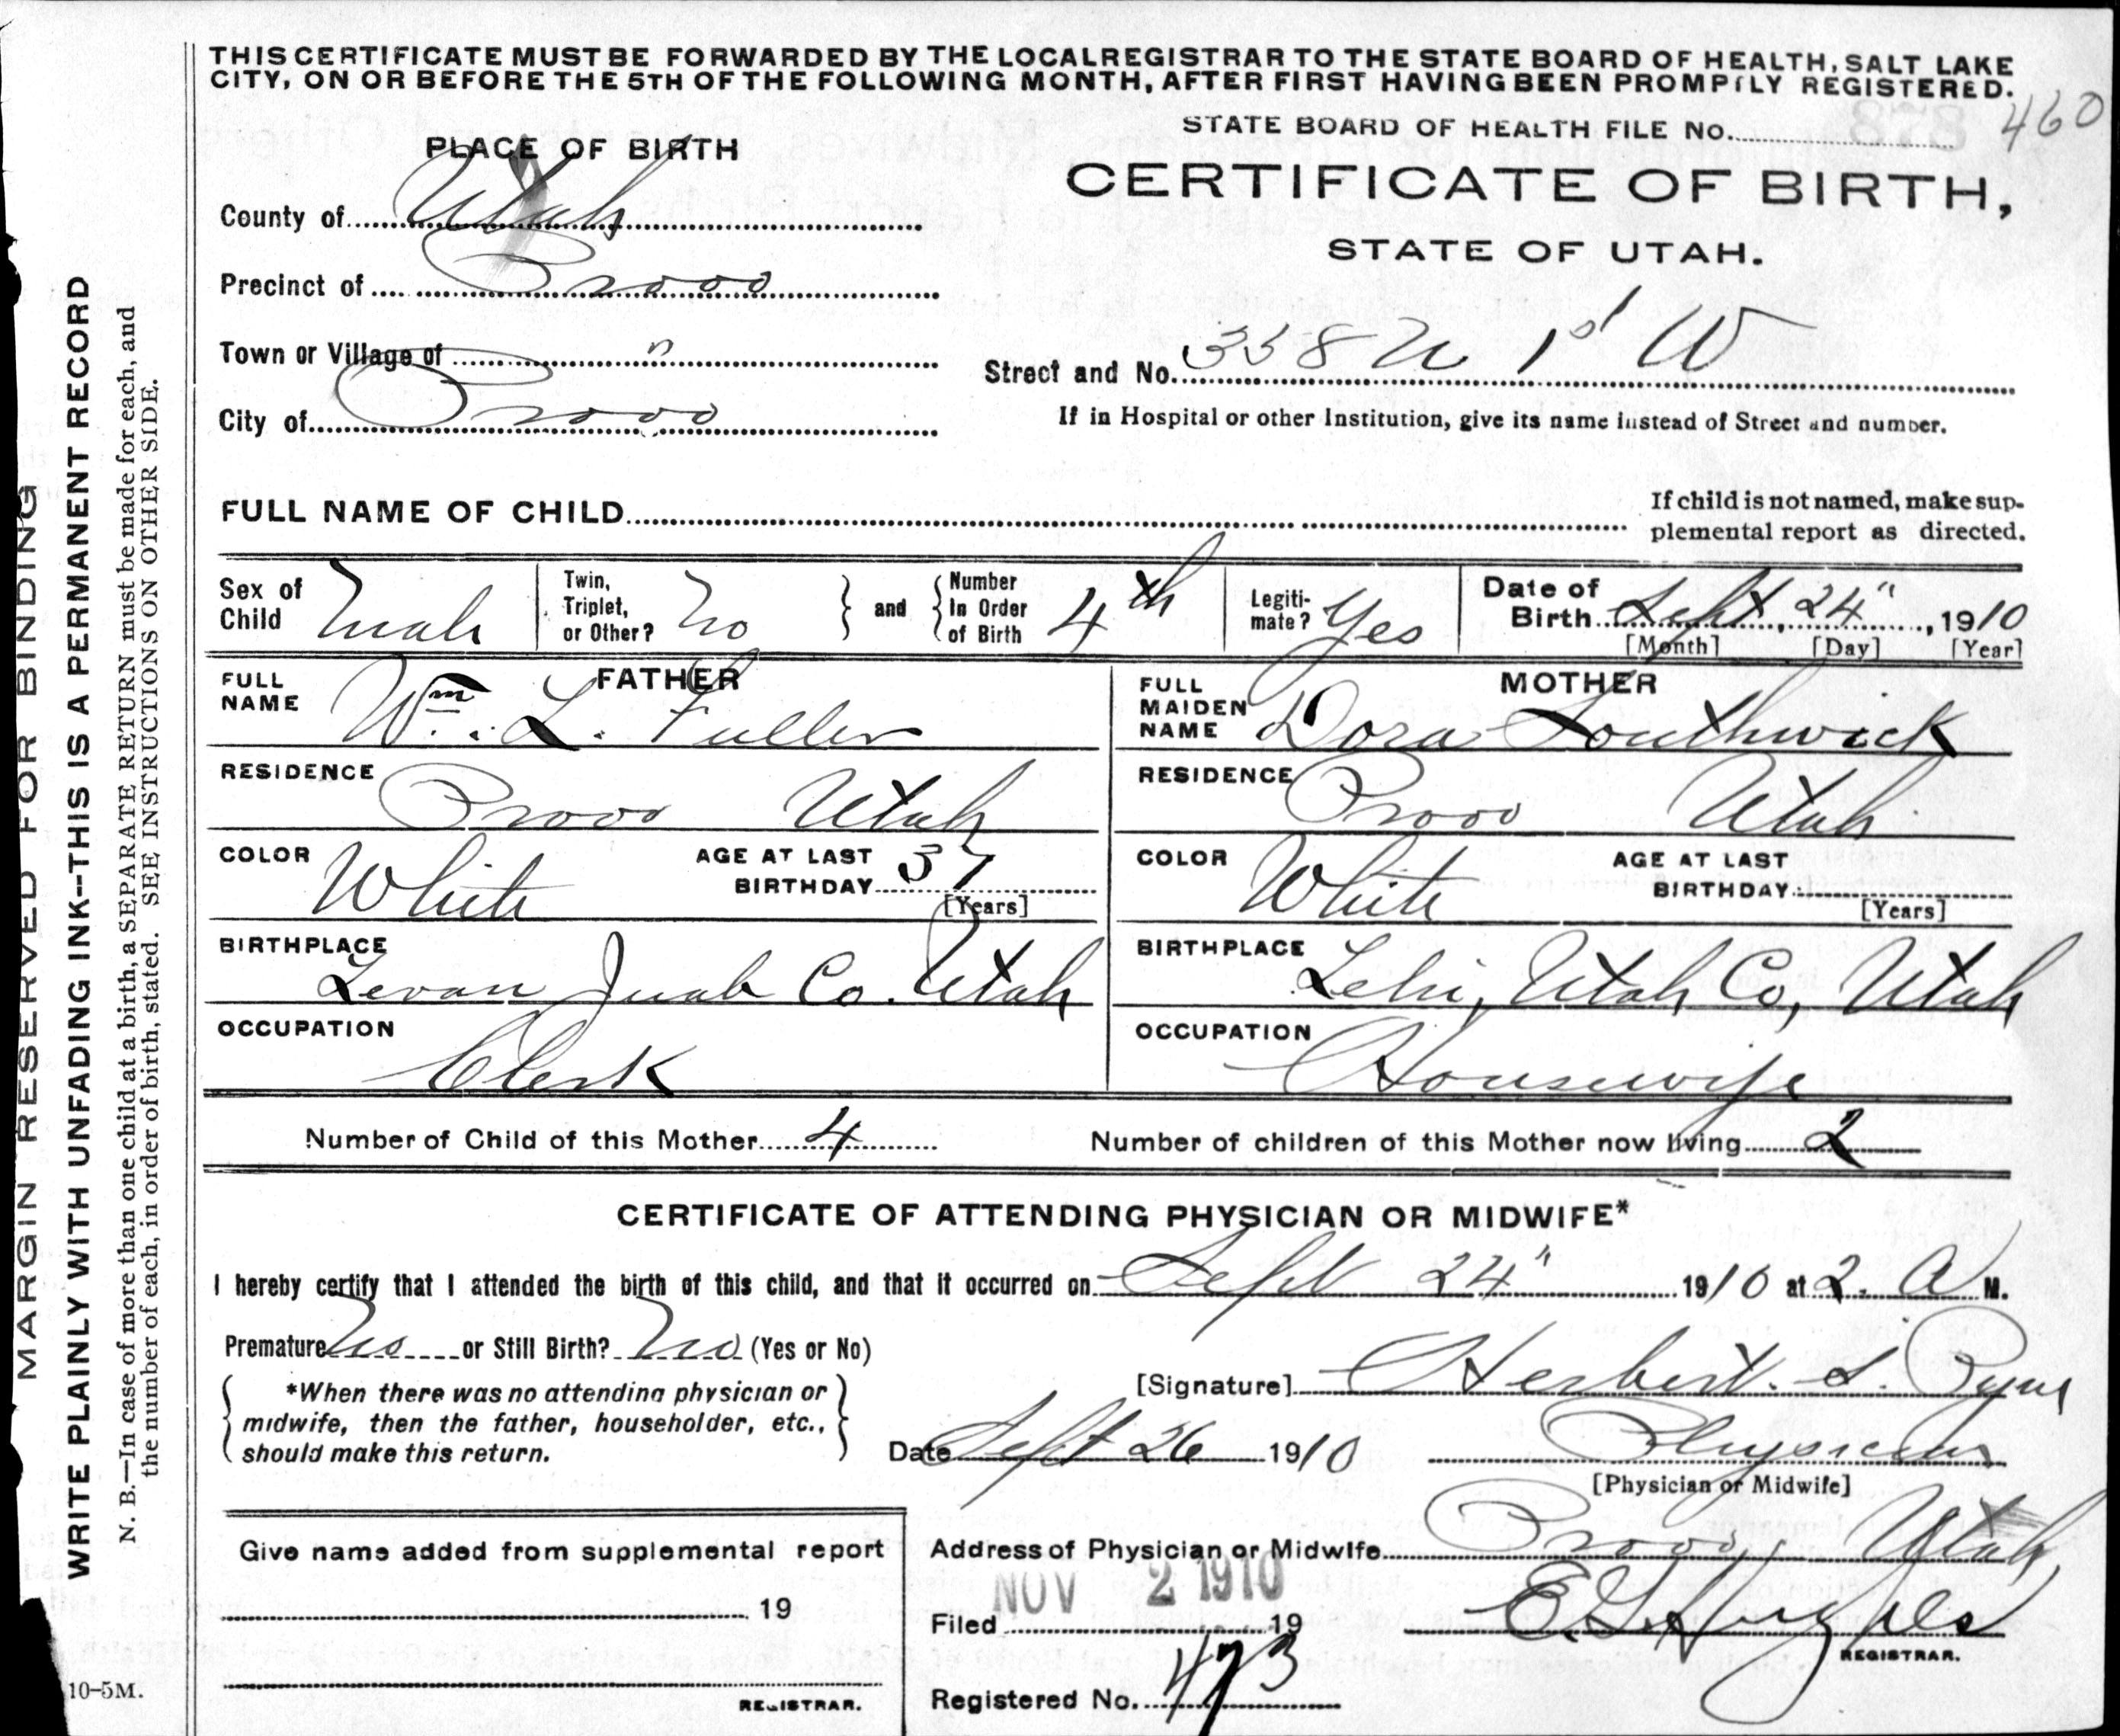 THIS CERTIFICATE MUST BE FORWARDED BY THE LOCAL REGISTRAR TO THE STATE BOARD OF HEALTH, SALT LAKE
CITY, ON OR BEFORE THE 5TH OF THE FOLLOWING MONTH, AFTER FIRST HAVING BEEN PROMPTLY REGISTERED.
STATE BOARD OF HEALTH FILE No. 460
878
PLACE OF BIRTH
CERTIFICATE OF BIRTH,
STATE OF UTAH.
County of Utah
Precinct of Provo
Town or Village of "
City of Provo
Street and No. 358 N 1st W
If in Hospital or other Institution, give its name instead of Street and number.
FULL NAME OF CHILD
If child is not named, make sup-
plemental report as directed.
Sex of Child Male
Twin, Triplet, or Other? No
and Number In Order of Birth 4th
Legiti-mate? Yes
Date of Birth Sept, 24", 1910
[Month] [Day] [Year]
FATHER
FULL NAME Wm. L. Fuller
RESIDENCE Provo Utah
COLOR White AGE AT LAST BIRTHDAY 37
[Years]
BIRTHPLACE Levan Juab Co. Utah
OCCUPATION Clerk
MOTHER
FULL MAIDEN NAME Dora Southwick
RESIDENCE Provo Utah
COLOR White AGE AT LAST BIRTHDAY
[Years]
BIRTHPLACE Lehi, Utah Co, Utah
OCCUPATION Housewife
Number of Child of this Mother 4 Number of children of this Mother now living 2
CERTIFICATE OF ATTENDING PHYSICIAN OR MIDWIFE*
I hereby certify that I attended the birth of this child, and that it occurred on Sept 24" 1910 at 2. A M.
Premature No or Still Birth? No (Yes or No)
*When there was no attending physician or
midwife, then the father, householder, etc.,
should make this return.
[Signature] Herbert. S. Pyne
Date Sept 26 1910
Physician
[Physician or Midwife]
Address of Physician or Midwife Provo, Utah
Give name added from supplemental report
19
REGISTRAR.
NOV 2 1910
Filed 19
E. G. Hughes
REGISTRAR.
Registered No. 473
10-5M.
MARGIN RESERVED FOR BINDING
WRITE PLAINLY WITH UNFADING INK--THIS IS A PERMANENT RECORD
N. B.—In case of more than one child at a birth, a SEPARATE RETURN must be made for each, and
the number of each, in order of birth, stated. SEE INSTRUCTIONS ON OTHER SIDE.